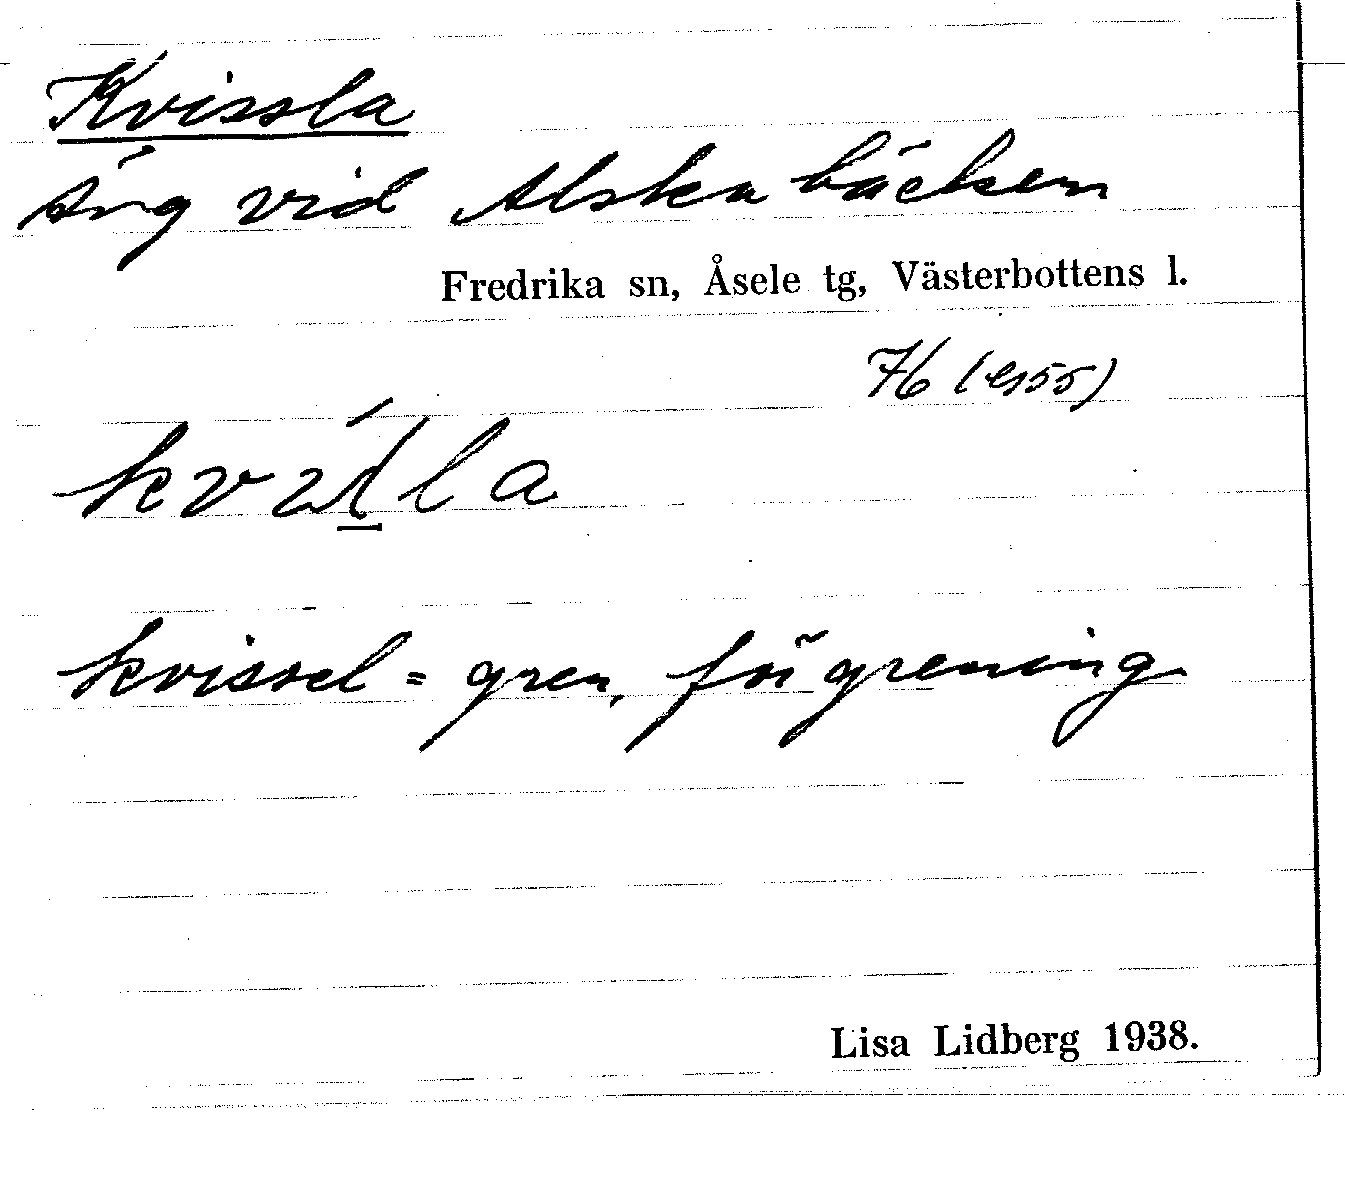 Kvissla
äng vid Alskabäcken
Fredrika sn, Åsele tg, Västerbottens l.
76 (e155)
kvissel = gren, förgrening
Lisa Lidberg 1938.